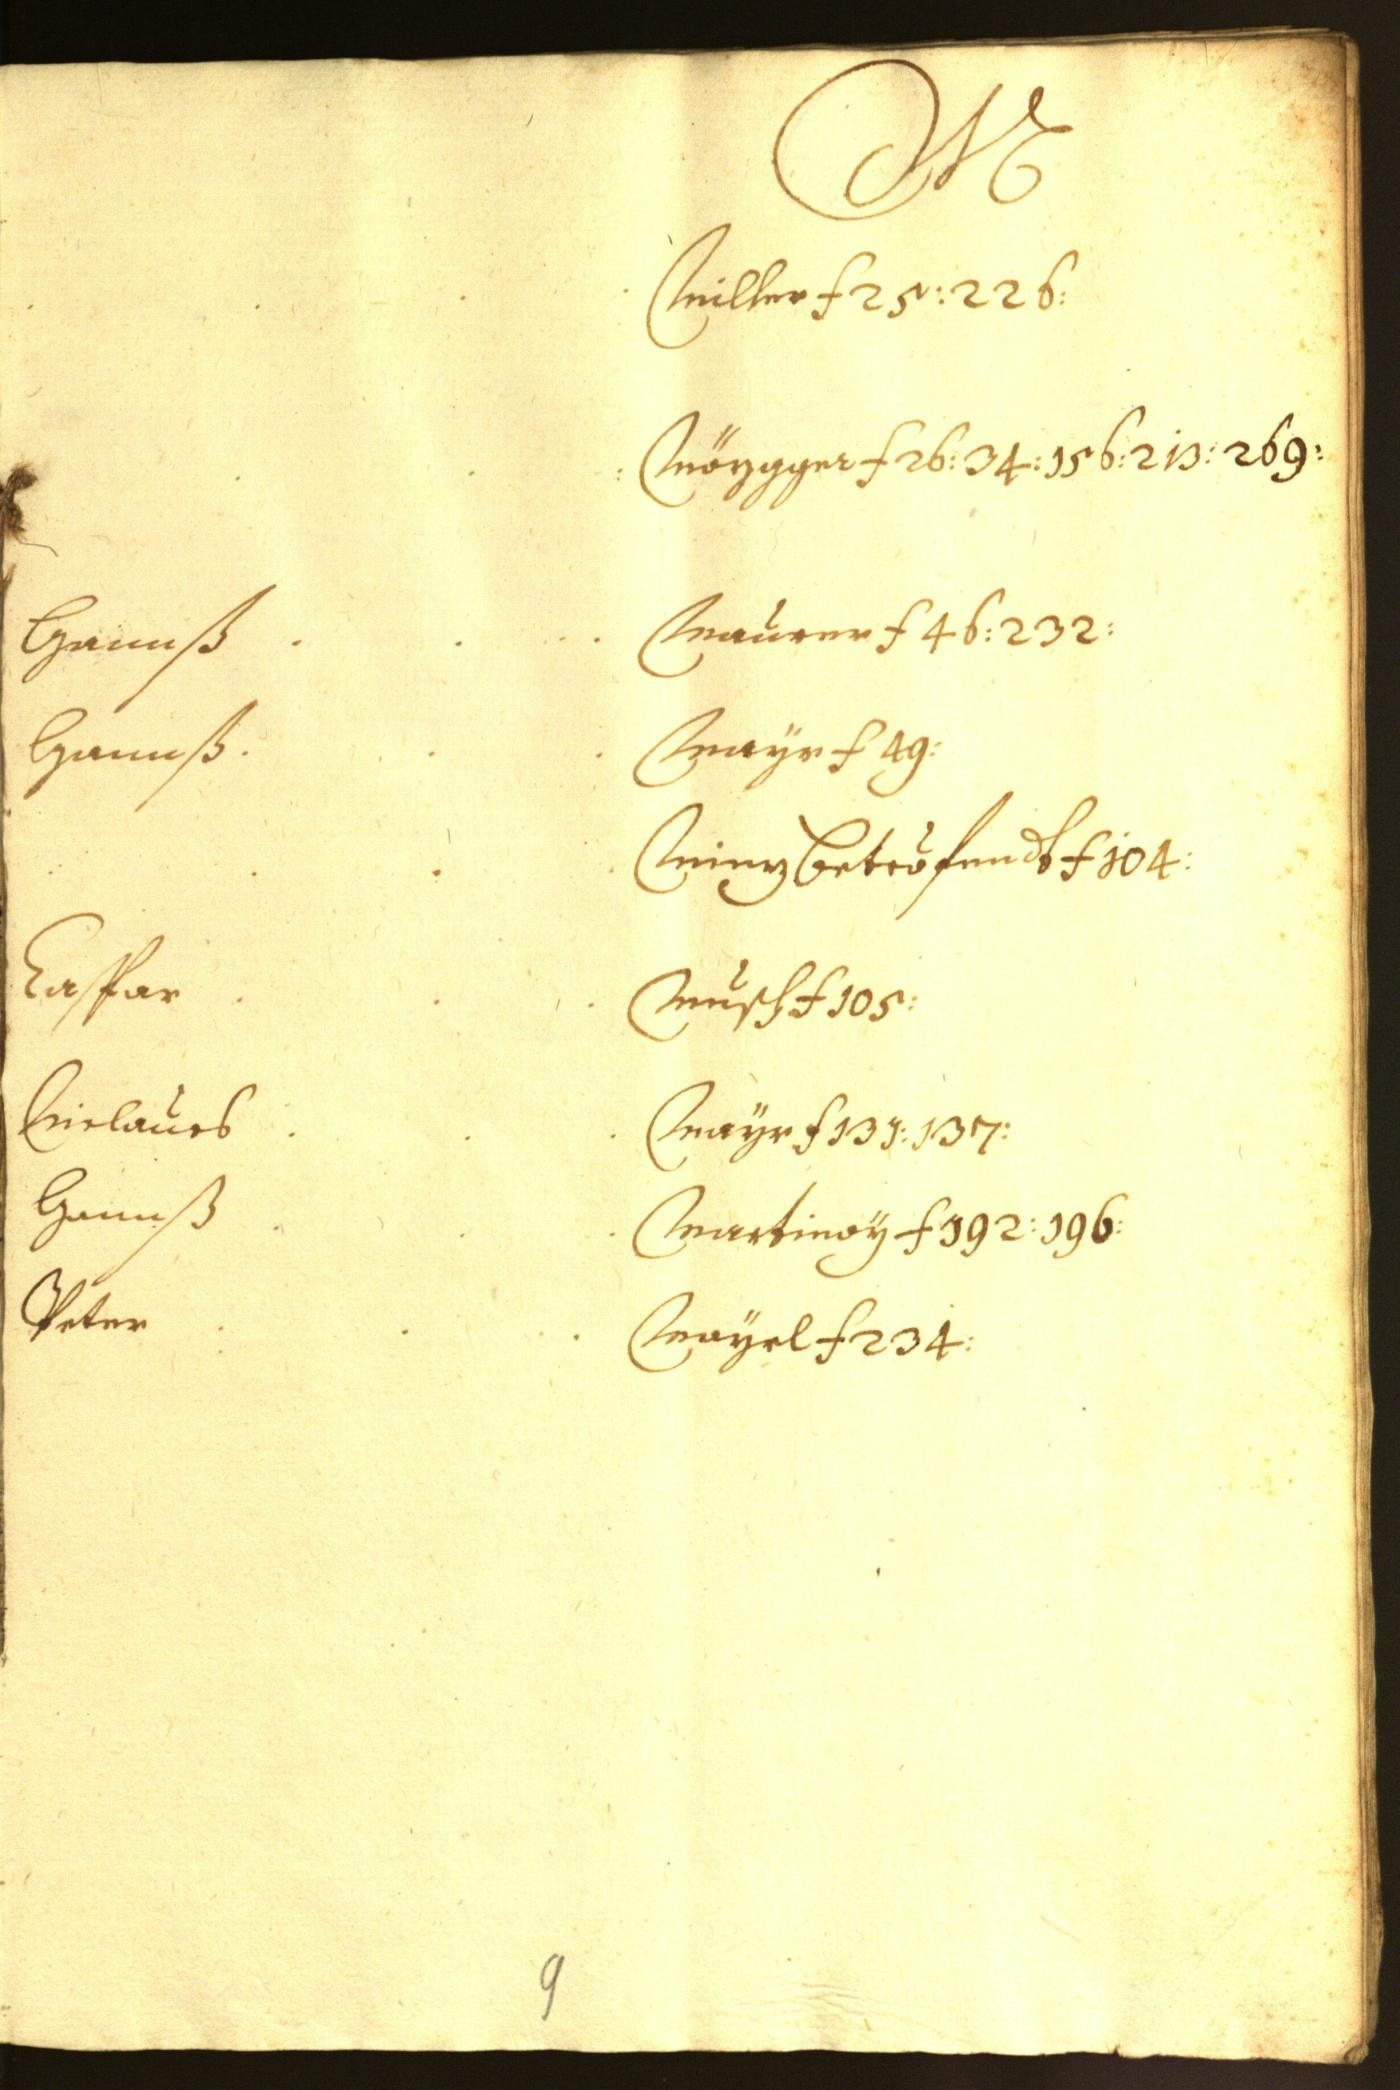 M
Miller f 25: 226:
Mözgger f 26: 34: 156: 213: 269:
Hannß . . . Maurer f 46: 232:
Hannß . . . Mayr f 49:
Minz betrofendt f 104:
Casspar . . . Musch f 105:
Niclauss . . . Maÿr f 131: 137:
Hannß . . . Martinoÿ f 192: 196:
Peter . . . Maÿrl f 234:
9